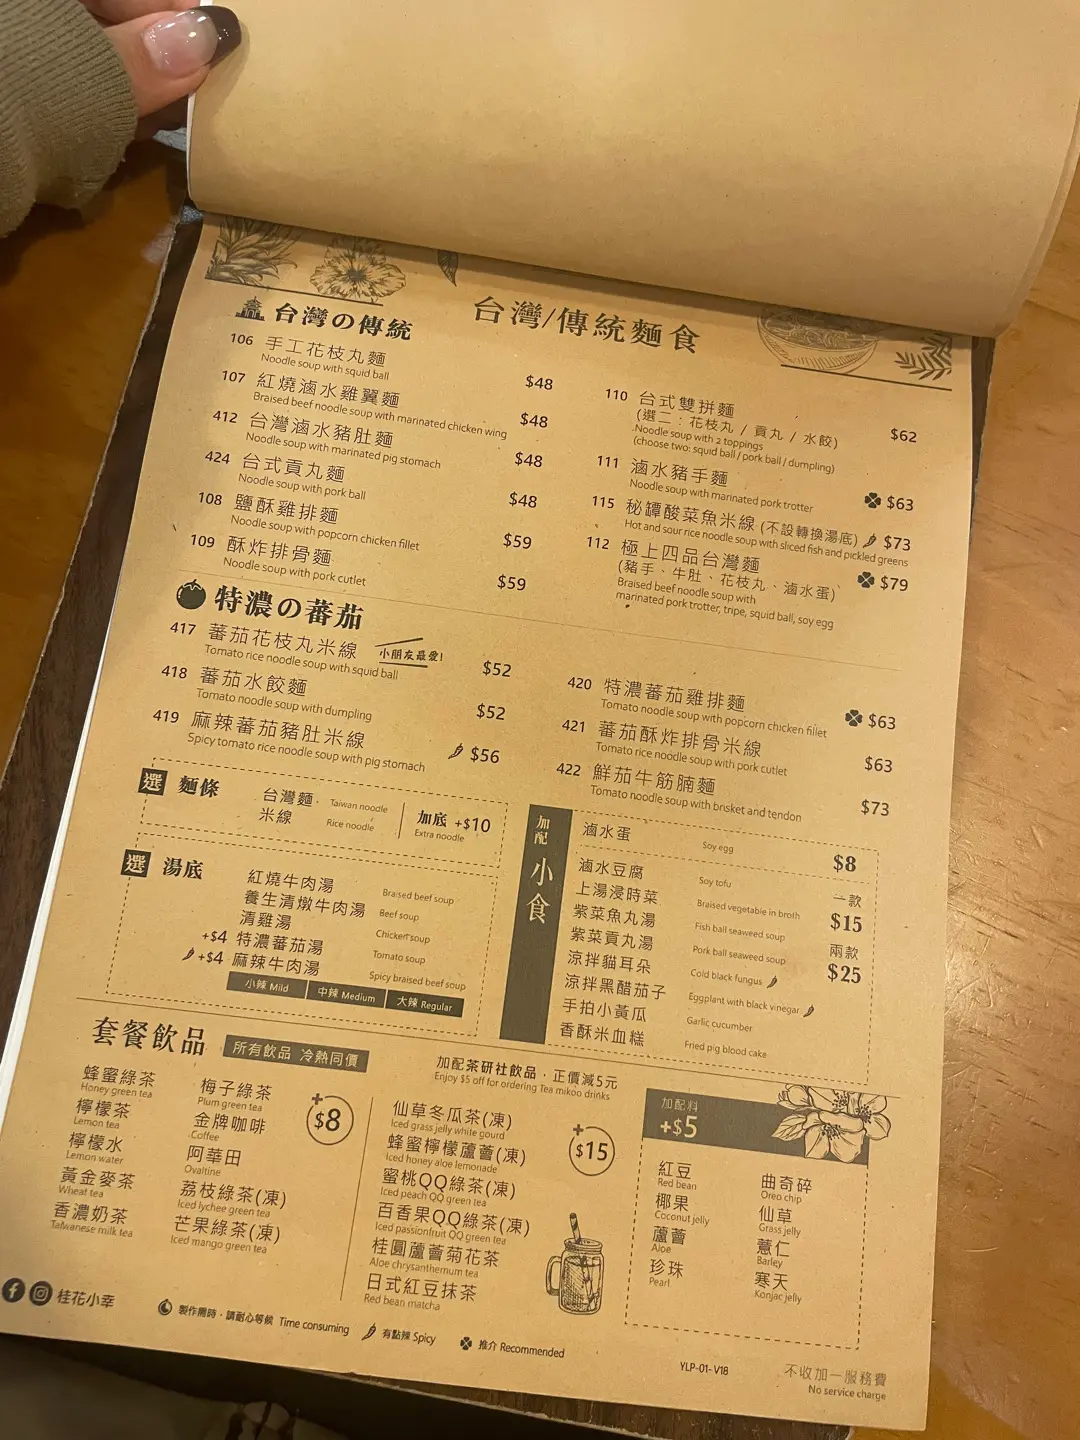 台灣/傳統麵食
台灣の傳統
106 手工花枝丸麵 $48
Noodle soup with squid ball
107 紅燒滷水雞翼麵 $48
Braised beef noodle soup with marinated chicken wing
412 台灣滷水豬肚麵 $48
Noodle soup with marinated pig stomach
424 台式貢丸麵 $48
Noodle soup with pork ball
108 鹽酥雞排麵 $59
Noodle soup with popcorn chicken fillet
109 酥炸排骨麵 $59
Noodle soup with pork cutlet
110 台式雙拼麵 $62
(選二：花枝丸 / 貢丸 / 水餃)
Noodle soup with 2 toppings
(choose two: squid ball / pork ball / dumpling)
111 滷水豬手麵 $63
Noodle soup with marinated pork trotter
115 秘罈酸菜魚米線 (不設轉換湯底) $73
Hot and sour rice noodle soup with sliced fish and pickled greens
112 極上四品台灣麵 $79
(豬手、牛肚、花枝丸、滷水蛋)
Braised beef noodle soup with
marinated pork trotter, tripe, squid ball, soy egg
特濃の蕃茄
417 蕃茄花枝丸米線 小朋友最愛! $52
Tomato rice noodle soup with squid ball
418 蕃茄水餃麵 $52
Tomato noodle soup with dumpling
419 麻辣蕃茄豬肚米線 $56
Spicy tomato rice noodle soup with pig stomach
420 特濃蕃茄雞排麵 $63
Tomato noodle soup with popcorn chicken fillet
421 蕃茄酥炸排骨米線 $63
Tomato rice noodle soup with pork cutlet
422 鮮茄牛筋腩麵 $73
Tomato noodle soup with brisket and tendon
選 麵條
台灣麵 Taiwan noodle
米線 Rice noodle
加底 +$10
Extra noodle
選 湯底
紅燒牛肉湯 Braised beef soup
養生清燉牛肉湯 Beef soup
清雞湯 Chicken soup
+$4 特濃蕃茄湯 Tomato soup
+$4 麻辣牛肉湯 Spicy braised beef soup
小辣 Mild 中辣 Medium 大辣 Regular
加配 小食
滷水蛋 Soy egg $8
滷水豆腐 Soy tofu
上湯浸時菜 Braised vegetable in broth
紫菜魚丸湯 Fish ball seaweed soup
紫菜貢丸湯 Pork ball seaweed soup
涼拌貓耳朵 Cold black fungus
涼拌黑醋茄子 Eggplant with black vinegar
手拍小黃瓜 Garlic cucumber
香酥米血糕 Fried pig blood cake
一款
$15
兩款
$25
套餐飲品 所有飲品 冷熱同價
蜂蜜綠茶
Honey green tea
檸檬茶
Lemon tea
檸檬水
Lemon water
黃金麥茶
Wheat tea
香濃奶茶
Taiwanese milk tea
梅子綠茶
Plum green tea
金牌咖啡
Coffee
阿華田
Ovaltine
荔枝綠茶(凍)
Iced lychee green tea
芒果綠茶(凍)
Iced mango green tea
+$8
加配茶研社飲品，正價減5元
Enjoy $5 off for ordering Tea mikoo drinks
仙草冬瓜茶(凍)
Iced grass jelly white gourd
蜂蜜檸檬蘆薈(凍)
Iced honey aloe lemonade
蜜桃QQ綠茶(凍)
Iced peach QQ green tea
百香果QQ綠茶(凍)
Iced passionfruit QQ green tea
桂圓蘆薈菊花茶
Aloe chrysanthemum tea
日式紅豆抹茶
Red bean matcha
+$15
加配料
+$5
紅豆
Red bean
椰果
Coconut jelly
蘆薈
Aloe
珍珠
Pearl
曲奇碎
Oreo chip
仙草
Grass jelly
薏仁
Barley
寒天
Konjac jelly
桂花小幸
製作需時，請耐心等候 Time consuming
有點辣 Spicy
推介 Recommended
YLP-01-V18
不收加一服務費
No service charge